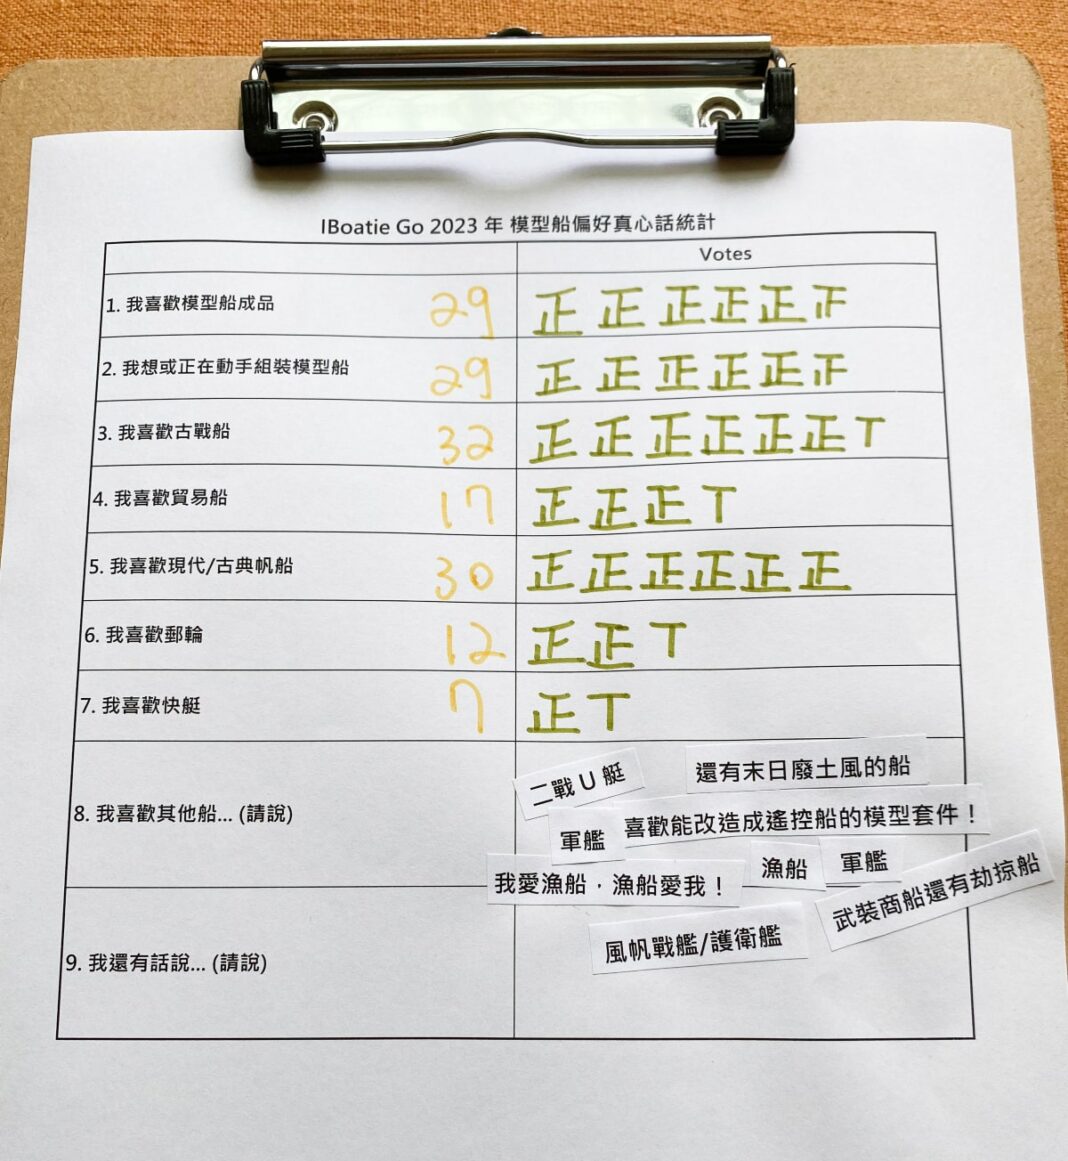 IBoatie Go 2023 年 模型船偏好真心話統計
Votes
1. 我喜歡模型船成品 29 正正正正正𤴓
2. 我想或正在動手組裝模型船 29 正正正正正𤴓
3. 我喜歡古戰船 32 正正正正正正丅
4. 我喜歡貿易船 17 正正正丅
5. 我喜歡現代/古典帆船 30 正正正正正正
6. 我喜歡郵輪 12 正正丅
7. 我喜歡快艇 7 正丅
8. 我喜歡其他船... (請說)
二戰 U 艇
還有末日廢土風的船
軍艦
喜歡能改造成遙控船的模型套件！
我愛漁船，漁船愛我！
漁船
軍艦
武裝商船還有劫掠船
風帆戰艦/護衛艦
9. 我還有話說... (請說)